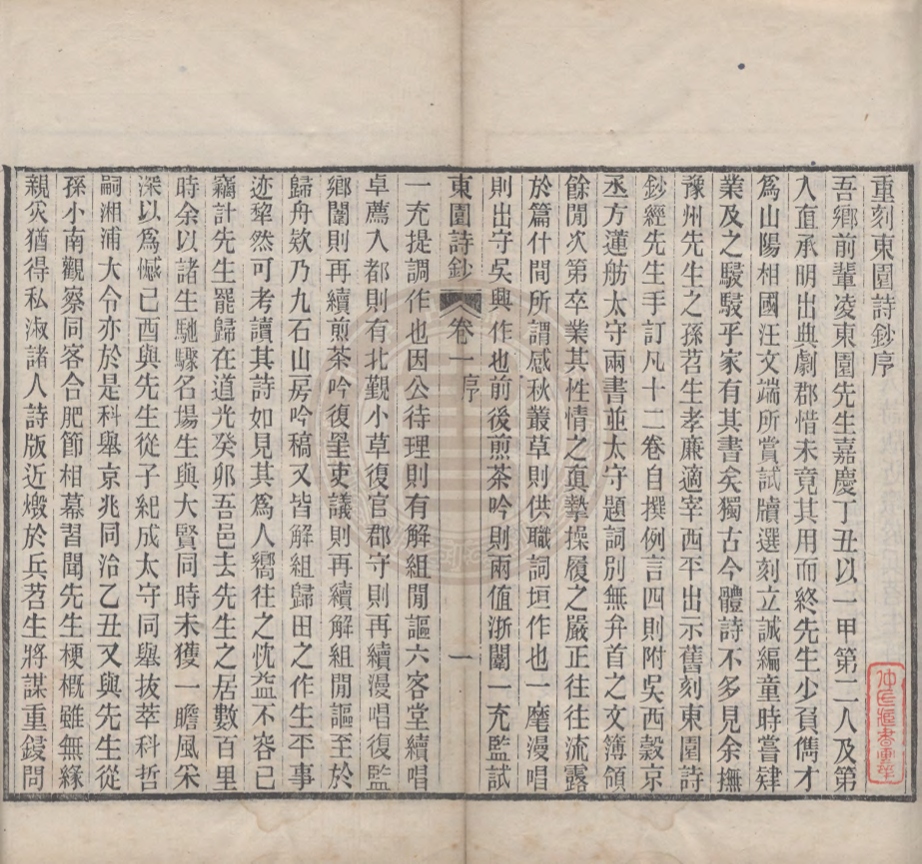 重刻東園詩鈔序
吾鄉前輩凌東園先生嘉慶丁丑以一甲第二人及第
入直承明出典劇郡惜未竟其用而終先生少負儁才
爲山陽相國汪文端所賞試牘選刻立誠編童時嘗肄
業及之駸駸乎家有其書矣獨古今體詩不多見余撫
豫州先生之孫苕生孝廉適宰西平出示舊刻東園詩
鈔經先生手訂凡十二卷自撰例言四則附吳西穀京
丞方蓮舫太守兩書並太守題詞別無弁首之文簿領
餘閒次第卒業其性情之眞摯操履之嚴正往往流露
於篇什間所謂感秋叢草則供職詞垣作也一麾漫唱
則出守吳興作也前後煎茶吟則兩值浙闈一充監試
東園詩鈔 卷一序 一
一充提調作也因公待理則有解組閒謳六客堂續唱
卓薦入都則有北觀小草復官郡守則再續漫唱復監
鄉闈則再續煎茶吟復罣吏議則再續解組閒謳至於
歸舟欸乃九石山房吟稿又皆解組歸田之作生平事
迹犂然可考讀其詩如見其爲人嚮往之忱益不容已
竊計先生罷歸在道光癸卯吾邑去先生之居數百里
時余以諸生馳驟名場生與大賢同時未獲一瞻風采
深以爲憾己酉與先生從子紀成太守同舉拔萃科哲
嗣湘浦大令亦於是科舉京兆同治乙丑又與先生從
孫小南觀察同客合肥節相幕習聞先生梗概雖無緣
親炙猶得私淑諸人詩版近燬於兵苕生將謀重鋟問